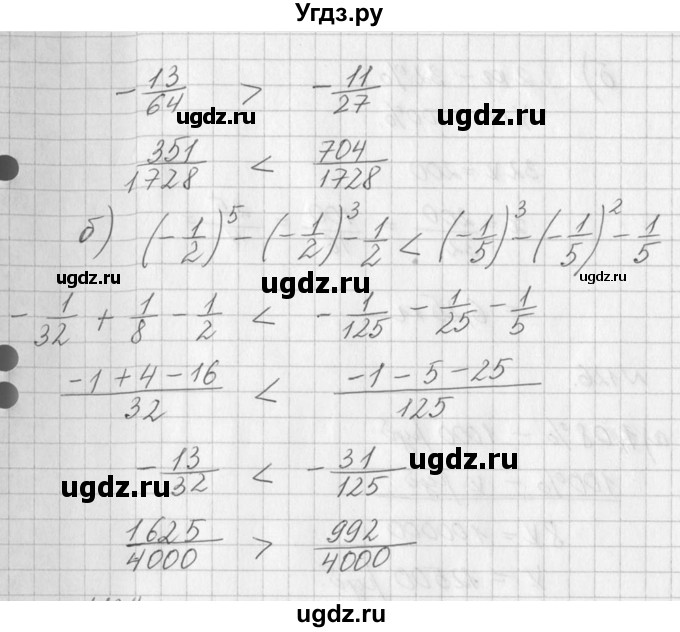 Угдз.ру
-13/64 > -11/27
ugdz.ru ugdz.ru
351/1728 < 704/1728
б) (-1/2)^5 - (-1/2)^3 - 1/2 < (-1/5)^3 - (-1/5)^2 - 1/5
ugdz.ru ugdz.ru ugdz.ru
-1/32 + 1/8 - 1/2 < -1/125 - 1/25 - 1/5
(-1+4-16)/32 < (-1-5-25)/125
-13/32 < -31/125
ugdz.ru ugdz.ru
1625/4000 > 992/4000
ugdz.ru